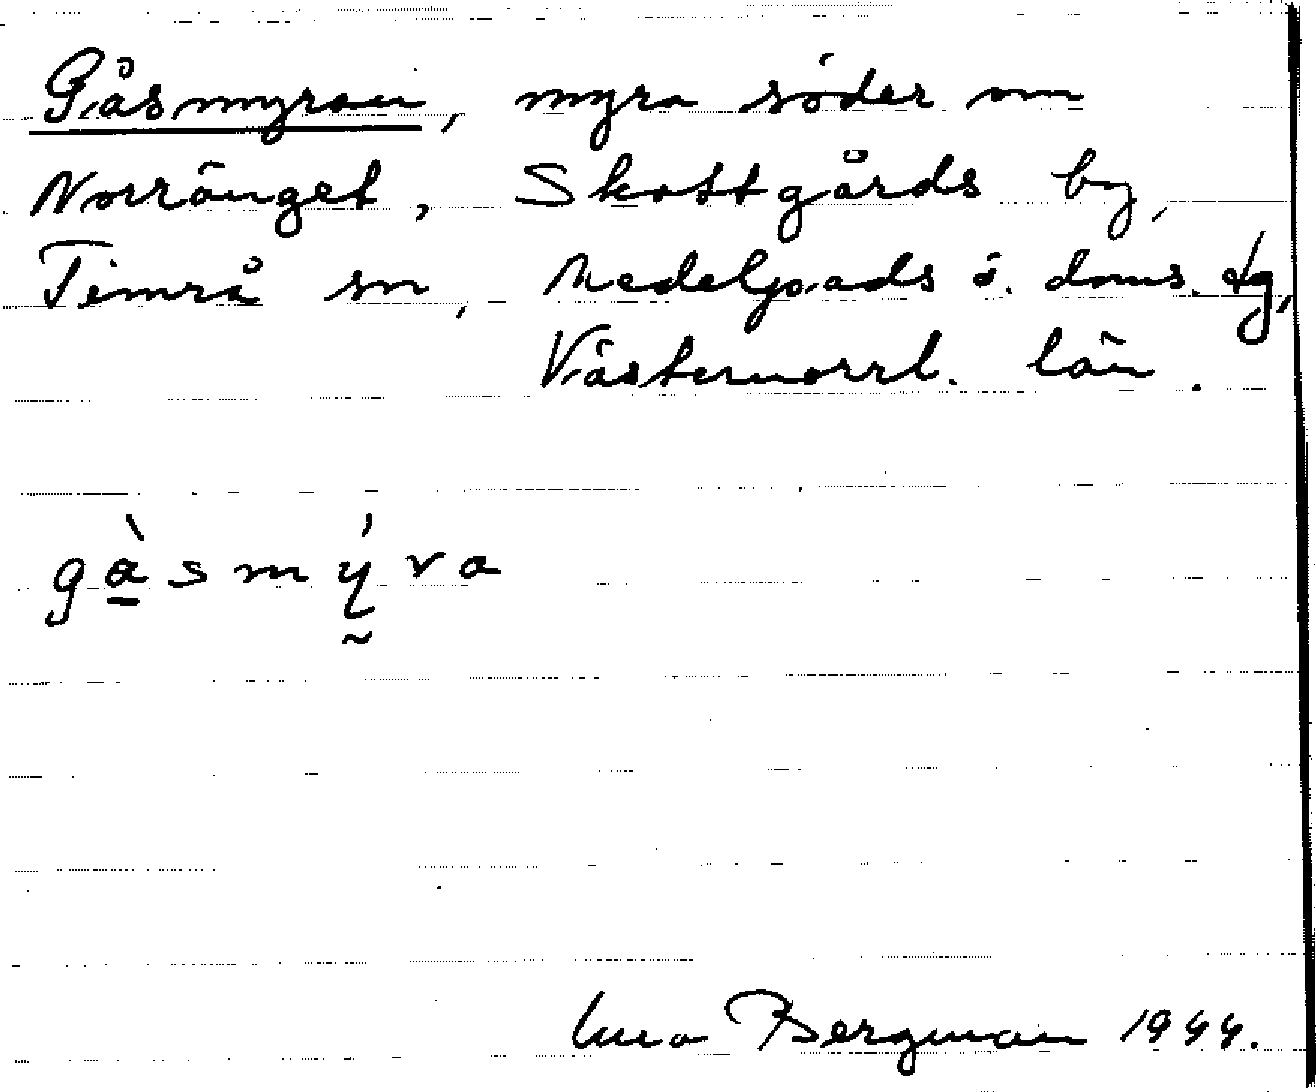 Gåsmyran, myra söder om
Norränget, Skottgårds by,
Timrå sn, Medelpads ö. doms. dg,
Västernorrl. län.
gàsmýra
Bergman 1944.